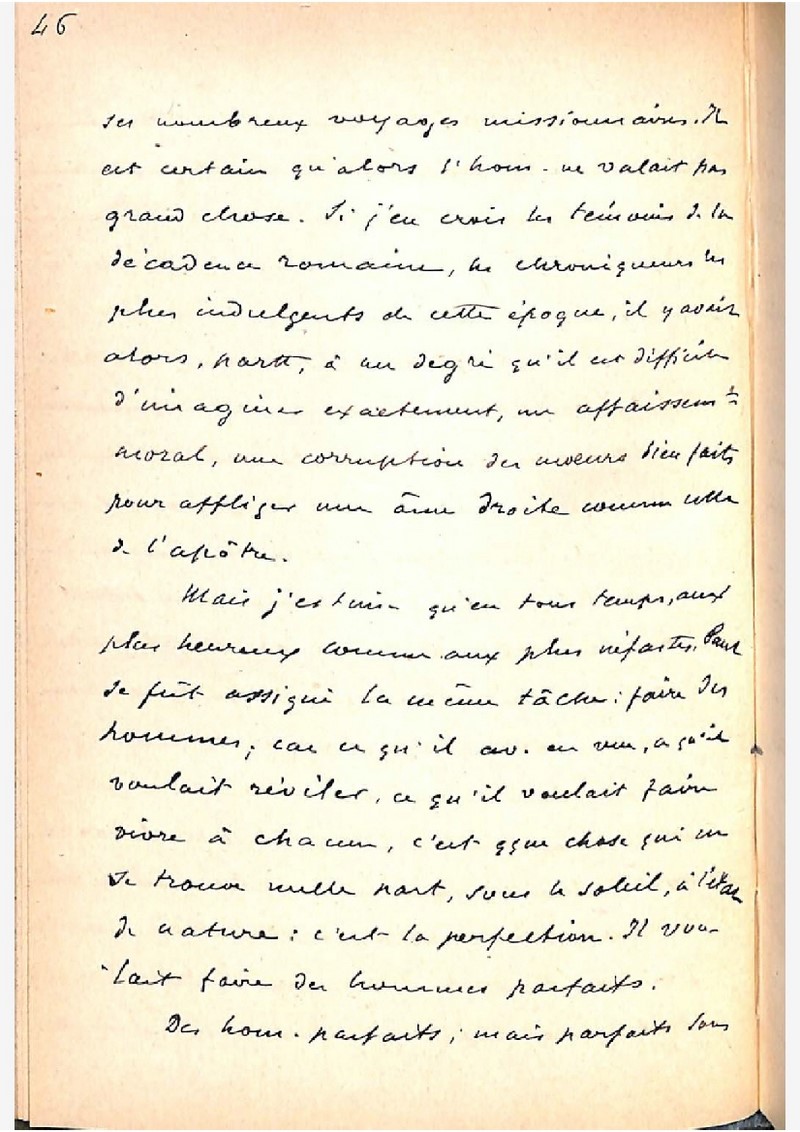 46
ses nombreux voyages missionnaires. Il
est certain qu'alors l'hom. ne valait pas
grand chose. Si j'en crois les témoins de la
décadence romaine, les chroniqueurs les
plus indulgents de cette époque, il y avait
alors, partt, à un degré qu'il est difficile
d'imaginer exactement, un affaissemt
moral, une corruption des moeurs bien faits
pour affliger une âme droite comme celle
de l'apôtre.
Mais j'estime qu'en tous temps, aux
plus heureux comme aux plus néfastes, Paul
se fût assigné la même tâche : faire des
hommes ; car ce qu'il av. en vue, ce qu'il
voulait révéler, ce qu'il voulait faire
vivre à chacun, c'est qque chose qui ne
se trouve nulle part, sous le soleil, à l'état
de nature : c'est la perfection. Il vou-
lait faire des hommes parfaits.
Des hom. parfaits ; mais parfaits sous